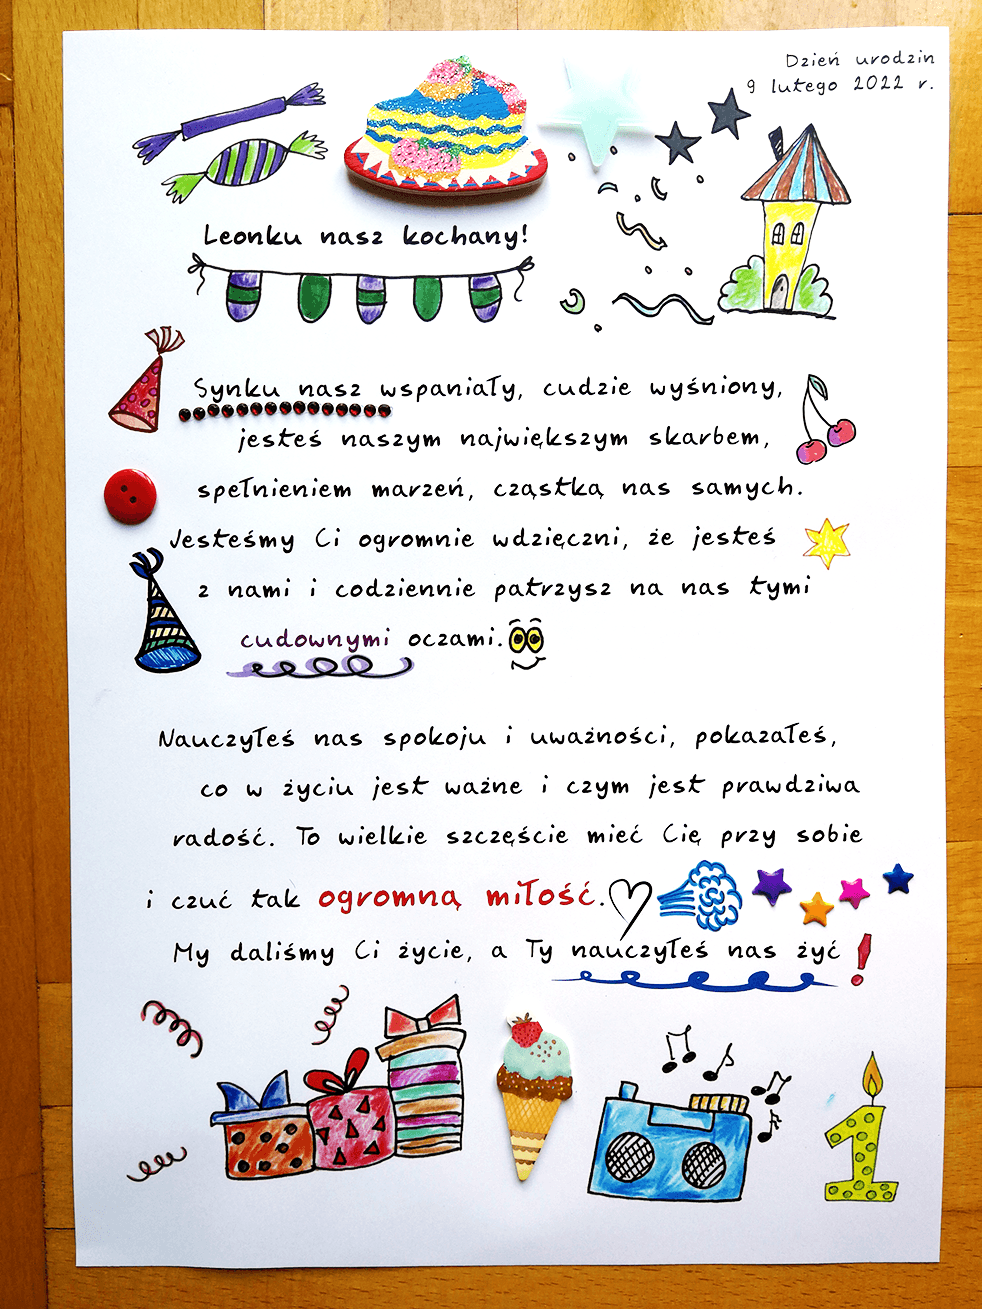 Dzień urodzin
9 lutego 2022 r.
Leonku nasz kochany!
Synku nasz wspaniały, cudzie wyśniony,
jesteś naszym największym skarbem,
spełnieniem marzeń, cząstką nas samych.
Jesteśmy Ci ogromnie wdzięczni, że jesteś
z nami i codziennie patrzysz na nas tymi
cudownymi oczami.
Nauczyłeś nas spokoju i uważności, pokazałeś,
co w życiu jest ważne i czym jest prawdziwa
radość. To wielkie szczęście mieć Cię przy sobie
i czuć tak ogromną miłość.
My daliśmy Ci życie, a Ty nauczyłeś nas żyć!
1